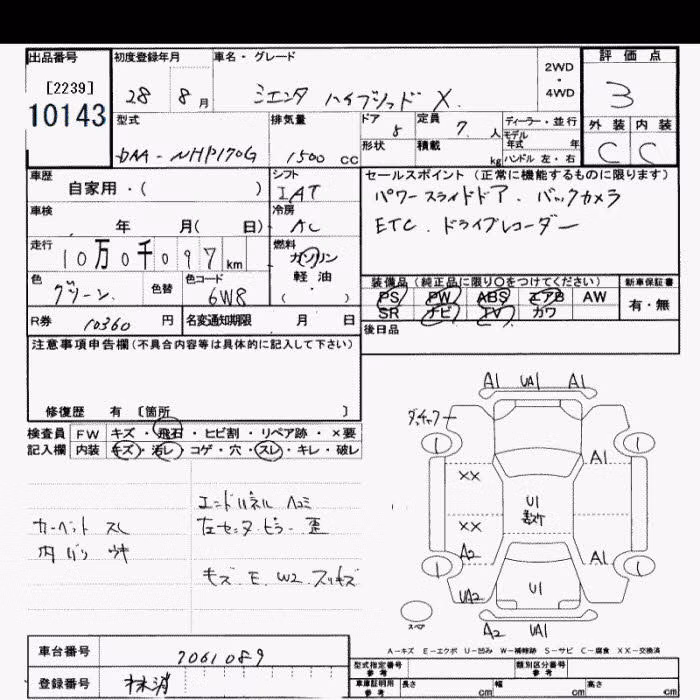 出品番号 初度登録年月 車名・グレード 2WD・4WD 評価点
[2239]
10143
28 8月 シエンタ ハイブリッド X 3
型式 排気量 ドア 5 定員 7 人 ディーラー・並行 外装 内装
モデル年式 年
DAA-NHP170G 1500 CC 形状 積載 kg ハンドル 左・右 C C
車歴 シフト セールスポイント (正常に機能するものに限ります)
自家用・( ) IAT パワースライドドア. バックカメラ
車検 冷房 ETC. ドライブレコーダー
年 月( 日) AC
走行 燃料
10万0千097km ガソリン
軽・油
( )
色 色替 色コード 装備品 (純正品に限り○をつけてください) 新車保証書
グリーン 6W8 PS PW ABS エアB AW 有・無
SR ナビ TV カワ
R券 10360 円 名変通知期限 月 日 後日品
注意事項申告欄(不具合内容等は具体的に記入して下さい)
修復歴 有 〔箇所 〕
検査員 FW キズ・飛石・ヒビ割・リペア跡・×要
記入欄 内装 キズ・汚レ・コゲ・穴・スレ・キレ・破レ
A1 UA1 A1
A1
XX
U1
XX
A2 A1
UA2 U1
スペア
A2 UA1
エンドパネル ヘコミ
カーペット スレ 左センターピラー 歪
キズ. E. W2. スリキズ
A-キズ E-エクボ U-凹み W-補修跡 S-サビ C-腐食 XX-交換済
車台番号 7061089 型式指定番号 参考 類別区分番号 参考
登録番号 抹消 車庫証明用 参考 長さ cm 幅 cm 高さ cm